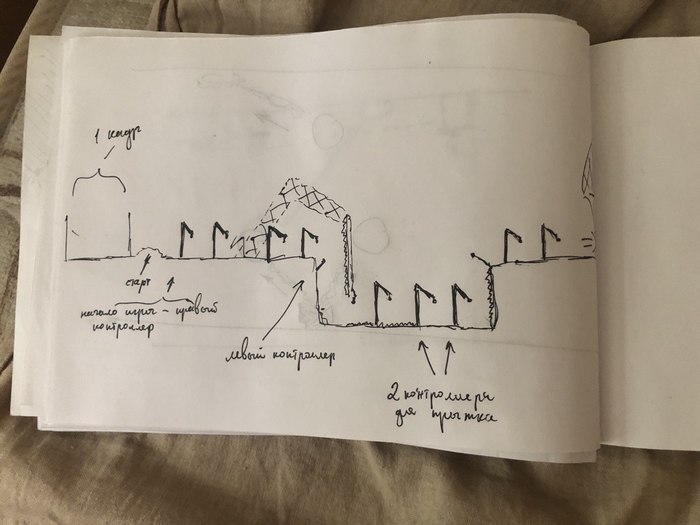 1 кадр
старт
начало игры - правый
контроллер
левый контроллер
2 контроллера
для прыжка